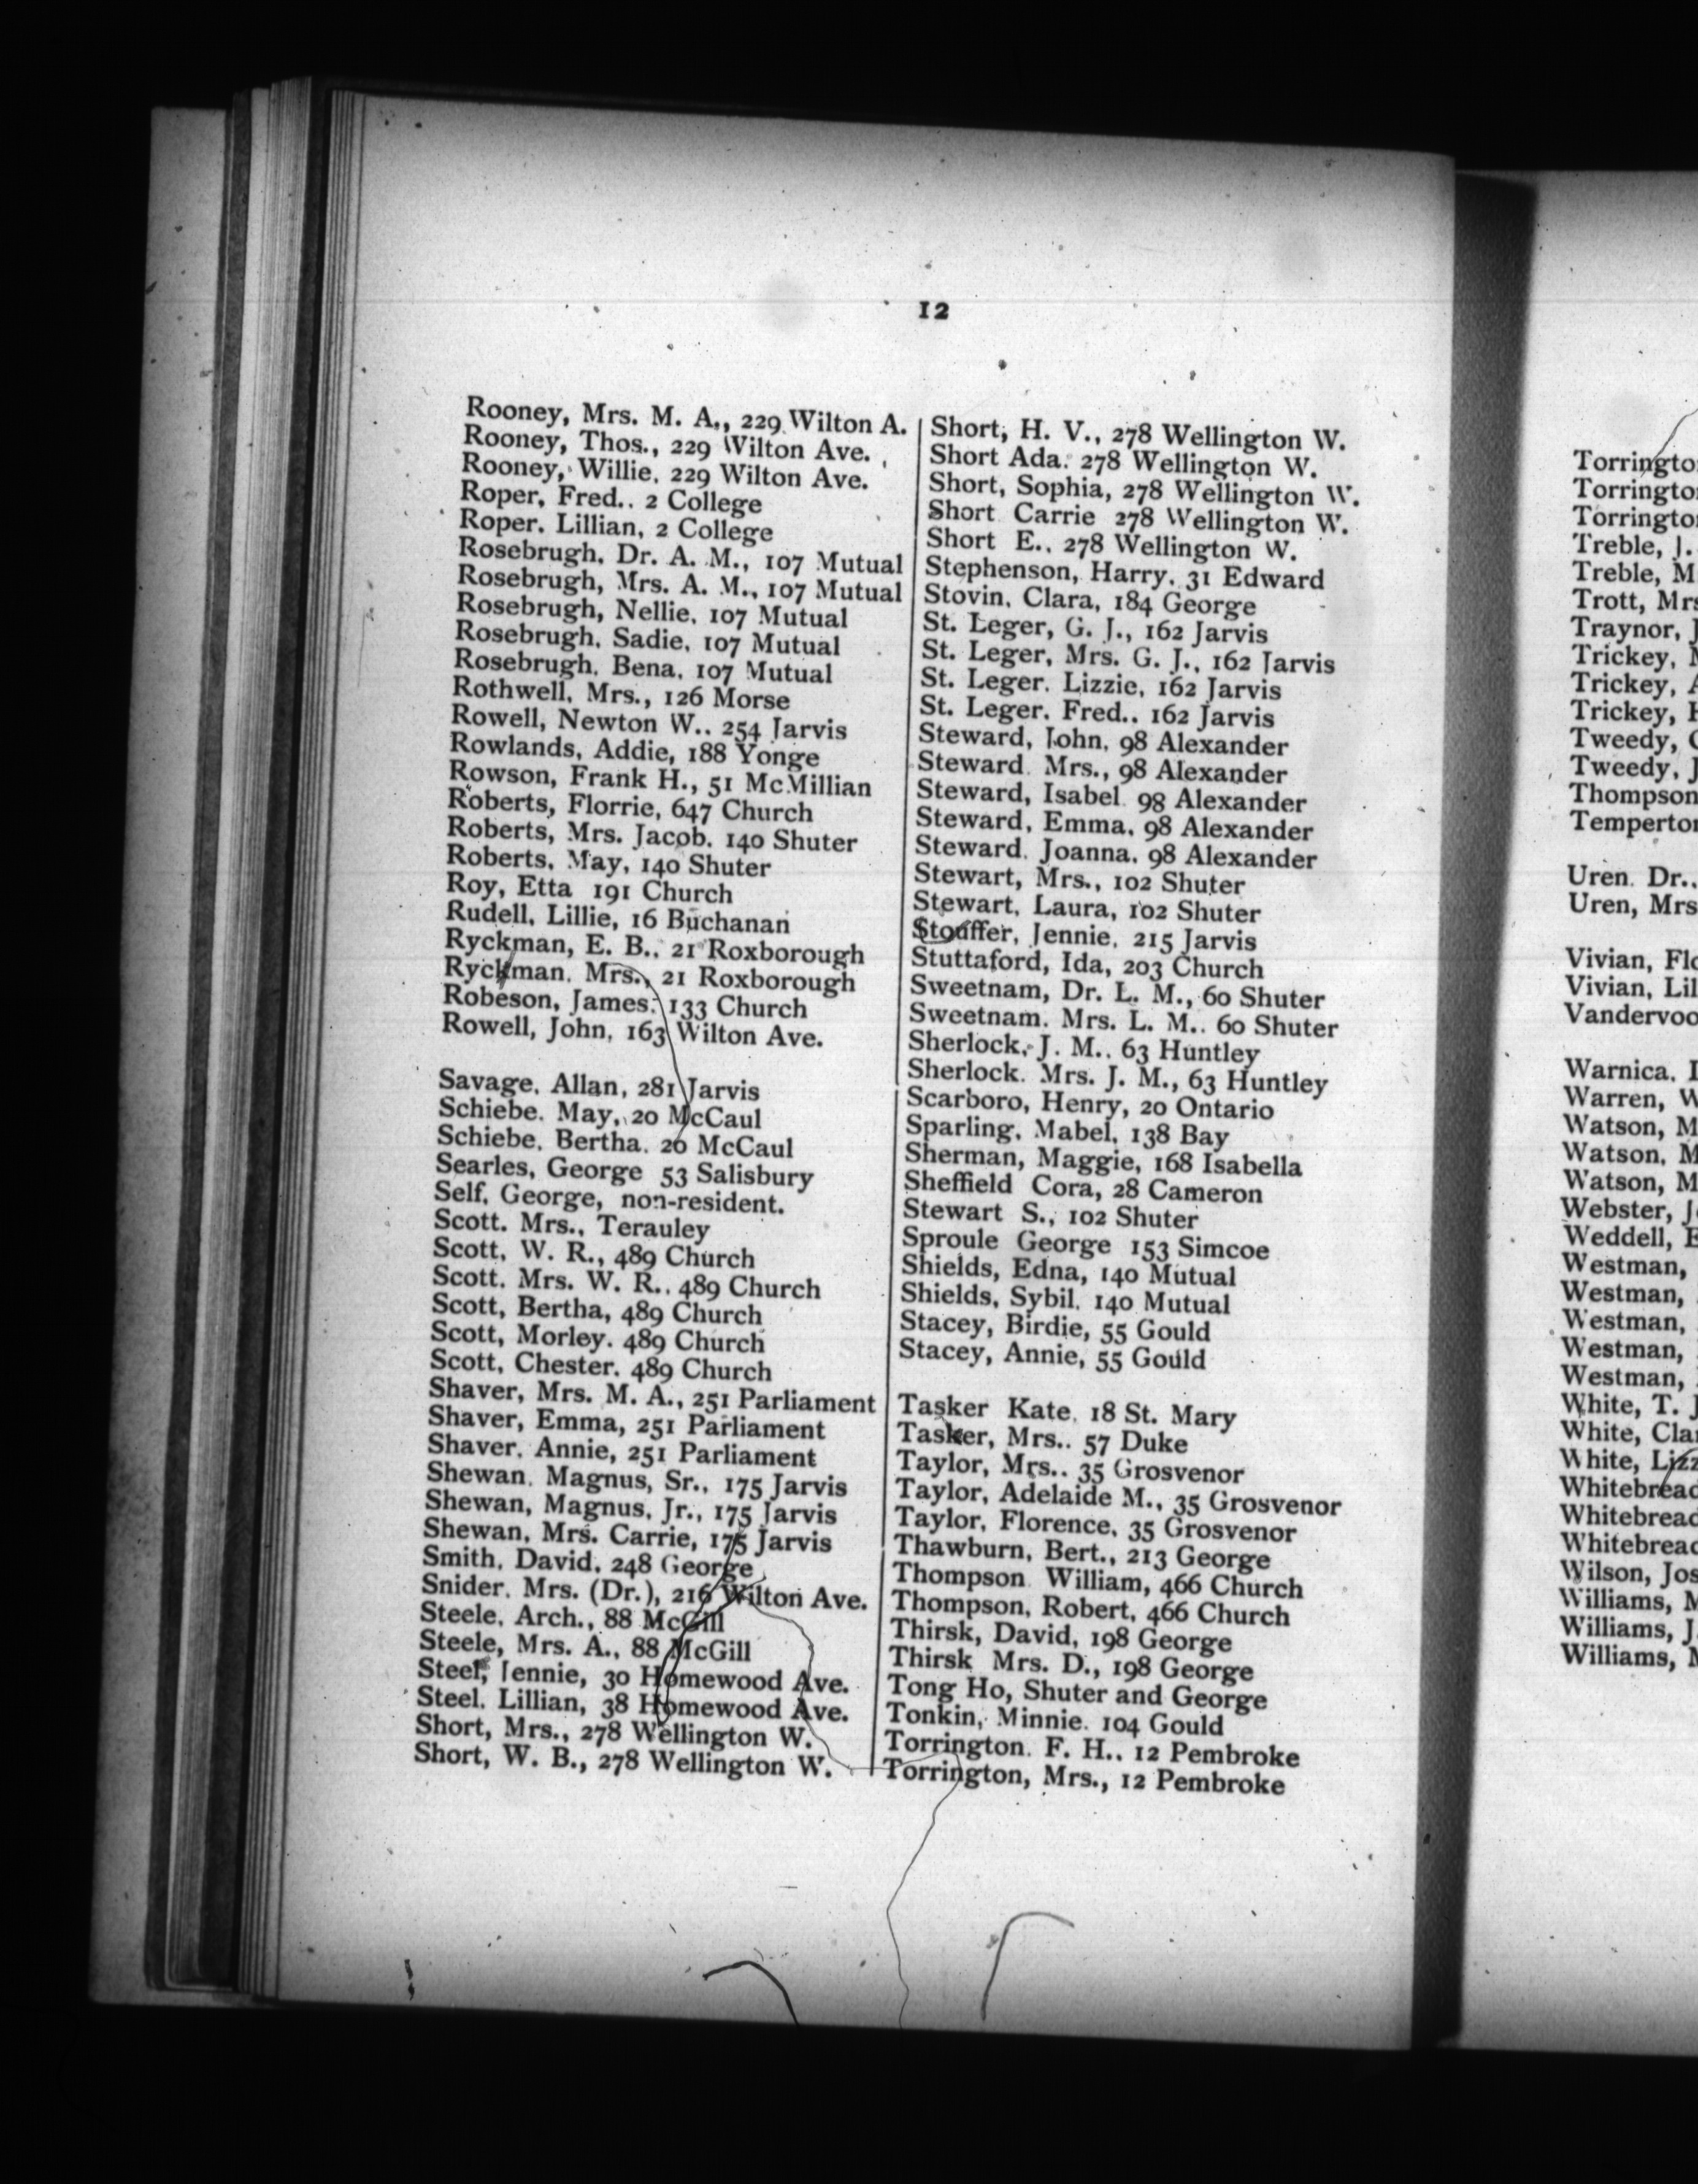 12
Rooney, Mrs. M. A., 229 Wilton A.
Rooney, Thos., 229 Wilton Ave.
Rooney, Willie, 229 Wilton Ave.
Roper, Fred., 2 College
Roper, Lillian, 2 College
Rosebrugh, Dr. A. M., 107 Mutual
Rosebrugh, Mrs. A. M., 107 Mutual
Rosebrugh, Nellie, 107 Mutual
Rosebrugh, Sadie, 107 Mutual
Rosebrugh, Bena, 107 Mutual
Rothwell, Mrs., 126 Morse
Rowell, Newton W., 254 Jarvis
Rowlands, Addie, 188 Yonge
Rowson, Frank H., 51 McMillian
Roberts, Florrie, 647 Church
Roberts, Mrs. Jacob, 140 Shuter
Roberts, May, 140 Shuter
Roy, Etta 191 Church
Rudell, Lillie, 16 Buchanan
Ryckman, E. B., 21 Roxborough
Ryckman, Mrs., 21 Roxborough
Robeson, James, 133 Church
Rowell, John, 163 Wilton Ave.
Savage, Allan, 281 Jarvis
Schiebe, May, 20 McCaul
Schiebe, Bertha, 20 McCaul
Searles, George 53 Salisbury
Self, George, non-resident.
Scott, Mrs., Terauley
Scott, W. R., 489 Church
Scott, Mrs. W. R., 489 Church
Scott, Bertha, 489 Church
Scott, Morley, 489 Church
Scott, Chester, 489 Church
Shaver, Mrs. M. A., 251 Parliament
Shaver, Emma, 251 Parliament
Shaver, Annie, 251 Parliament
Shewan, Magnus, Sr., 175 Jarvis
Shewan, Magnus, Jr., 175 Jarvis
Shewan, Mrs. Carrie, 175 Jarvis
Smith, David, 248 George
Snider, Mrs. (Dr.), 216 Wilton Ave.
Steele, Arch., 88 McGill
Steele, Mrs. A., 88 McGill
Steel, Jennie, 30 Homewood Ave.
Steel, Lillian, 38 Homewood Ave.
Short, Mrs., 278 Wellington W.
Short, W. B., 278 Wellington W.
Short, H. V., 278 Wellington W.
Short Ada, 278 Wellington W.
Short, Sophia, 278 Wellington W.
Short Carrie 278 Wellington W.
Short E., 278 Wellington W.
Stephenson, Harry, 31 Edward
Stovin, Clara, 184 George
St. Leger, G. J., 162 Jarvis
St. Leger, Mrs. G. J., 162 Jarvis
St. Leger, Lizzie, 162 Jarvis
St. Leger, Fred., 162 Jarvis
Steward, John, 98 Alexander
Steward Mrs., 98 Alexander
Steward, Isabel 98 Alexander
Steward, Emma, 98 Alexander
Steward, Joanna, 98 Alexander
Stewart, Mrs., 102 Shuter
Stewart, Laura, 102 Shuter
Stouffer, Jennie, 215 Jarvis
Stuttaford, Ida, 203 Church
Sweetnam, Dr. L. M., 60 Shuter
Sweetnam, Mrs. L. M., 60 Shuter
Sherlock, J. M., 63 Huntley
Sherlock, Mrs. J. M., 63 Huntley
Scarboro, Henry, 20 Ontario
Sparling, Mabel, 138 Bay
Sherman, Maggie, 168 Isabella
Sheffield Cora, 28 Cameron
Stewart S., 102 Shuter
Sproule George 153 Simcoe
Shields, Edna, 140 Mutual
Shields, Sybil, 140 Mutual
Stacey, Birdie, 55 Gould
Stacey, Annie, 55 Gould
Tasker Kate, 18 St. Mary
Tasker, Mrs., 57 Duke
Taylor, Mrs., 35 Grosvenor
Taylor, Adelaide M., 35 Grosvenor
Taylor, Florence, 35 Grosvenor
Thawburn, Bert., 213 George
Thompson William, 466 Church
Thompson, Robert, 466 Church
Thirsk, David, 198 George
Thirsk Mrs. D., 198 George
Tong Ho, Shuter and George
Tonkin, Minnie, 104 Gould
Torrington, F. H., 12 Pembroke
Torrington, Mrs., 12 Pembroke
Treble, J.
Treble,
Trott,
Traynor,
Trickey,
Trickey,
Trickey,
Tweedy,
Tweedy,
Thompson
Uren, Dr.
Uren, Mrs
Vivian,
Vivian,
Warnica,
Warren,
Watson,
Watson,
Watson,
Webster,
Weddell,
Westman,
Westman,
Westman,
Westman,
Westman,
White, T.
White,
White,
Wilson,
Williams,
Williams,
Williams,